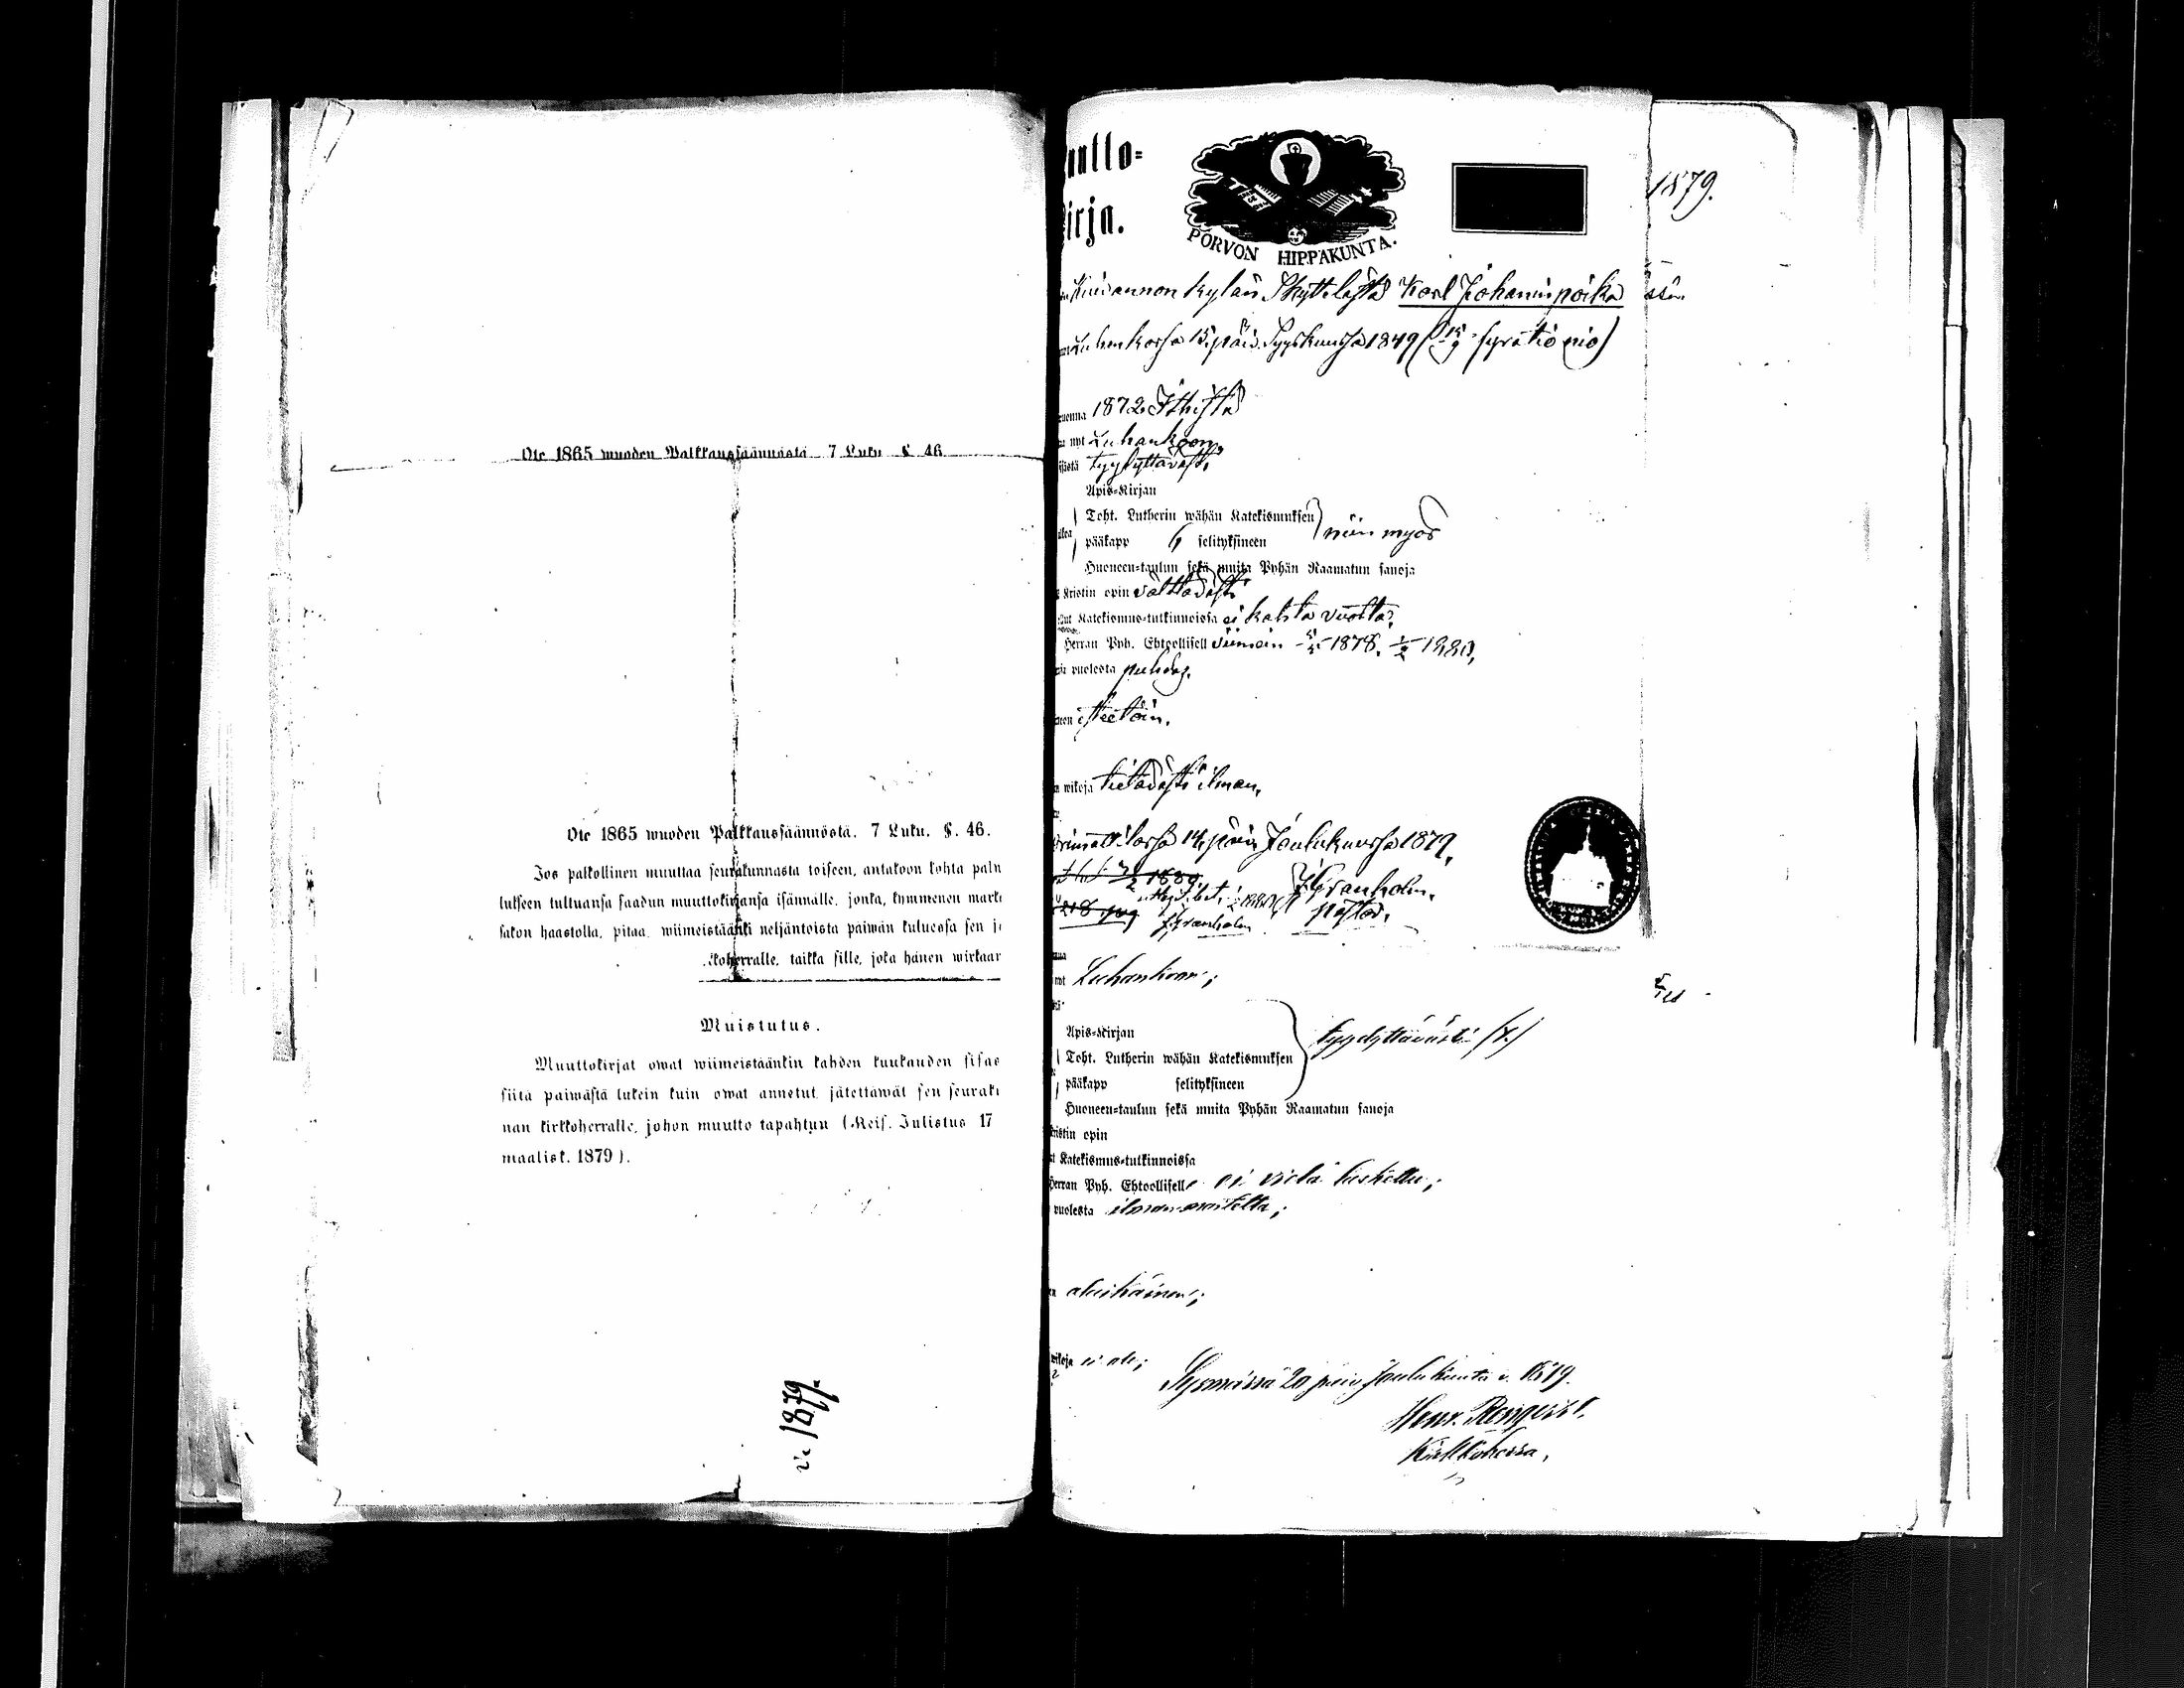 Ote 1865 wuoden Palkkaussäännöstä. 7 Luku. §. 46
Ote 1865 wuoden Palkkaussäännöstä. 7 Luku. §. 46.
Jos palkollinen muuttaa seurakunnasta toiseen, antakoon kohta palw
lukseen tultuansa saadun muuttokirjansa isännälle, jonka, kymmenen marka
sakon haastolla, pitää, wiimeistäänki neljäntoista päiwän kuluessa sen j
koherralle, taikka sille, joka hänen wirkaar
Muistutus.
Muuttokirjat owat wiimeistäänkin kahden kuukauden sisäs
siitä päiwästä lukein kuin owat annetut, jätettäwät sen seuraku
nan kirkkoherralle, johon muutto tapahtuu (Keis. Julistus 17
maalisk. 1879).
v. 1879.
uutto=
irja.
PORVON HIPPAKUNTA.
1879.
kylän Karl Johaninpoika
15 päiv. Syyskuussa 1849
wuonna 1872
nyt Luhankoon,
sisästä tyydyttäväst.
Apis=Kirjan
Toht. Lutherin wähän Katekismuksen
pääkapp 6 selityksineen
niin myös
Huoneen=taulun sekä muita Pyhän Raamatun sanoja
Kristin opin välttäväst.
Katekismus=tutkinnoissa ei kahta vuotta.
Herran Pyh. Ehtoollisell viimein 1878. 1880,
puolesta puhdas.
esteetöin.
wikoja tiettäväst. ilman.
14 päiv. Joulukuussa 1879.
J. Granholm.
pastor.
Granholm
nyt Luhankoon;
Apis=Kirjan
Toht. Lutherin wähän Katekismuksen
pääkapp selityksineen
tyydyttäväst.
Huoneen=taulun sekä muita Pyhän Raamatun sanoja
Kristin opin
Katekismus=tutkinnoissa
Herran Pyh. Ehtoollisell ei vielä laskettu;
puolesta ilman muistutta;
alaikäinen;
wikoja ei ole;
Sysmässä 20 päiv. Joulukuuta v. 1879.
Kirkkoherra.